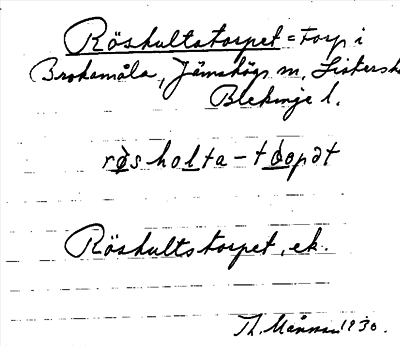 Röshultstorpet = torp i
Brokamåla, Jämshögs sn, Listers h
Blekinge l.
røsholta-toopət
Röshultstorpet, ek.
Th. 1930.